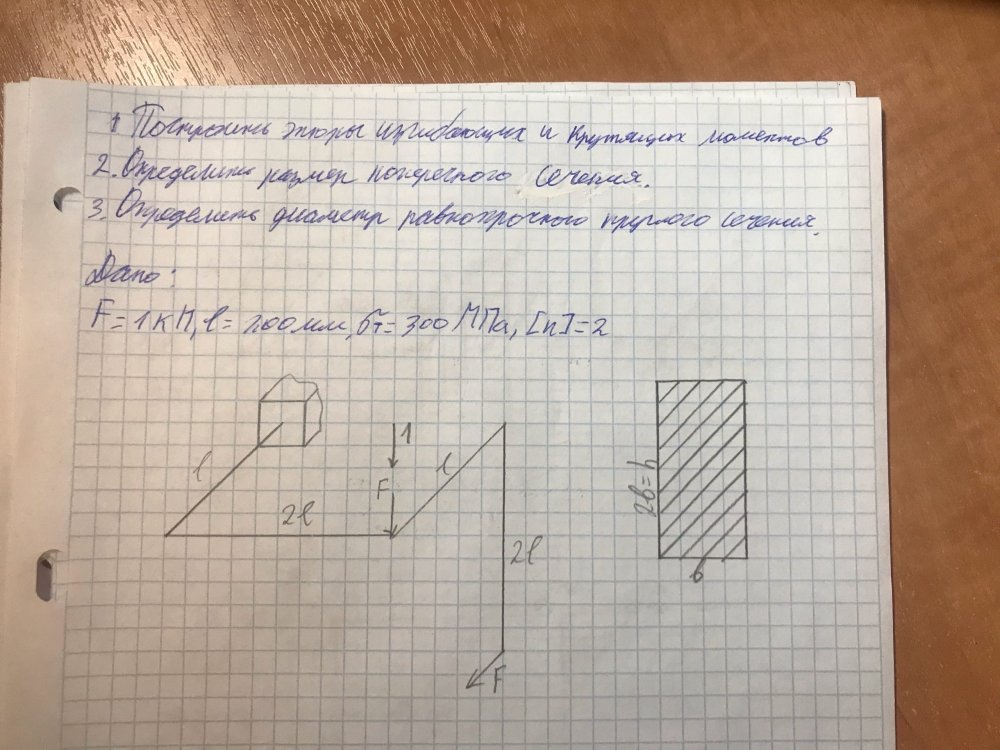 1 Построить эпюры изгибающих и крутящих моментов
2. Определить размер поперечного сечения.
3. Определить диаметр равнопрочного круглого сечения.
Дано:
F = 1 кН, l = 200 мм, σт = 300 МПа, [n] = 2
l
2l
1
F
l
2l
F
2b = h
b